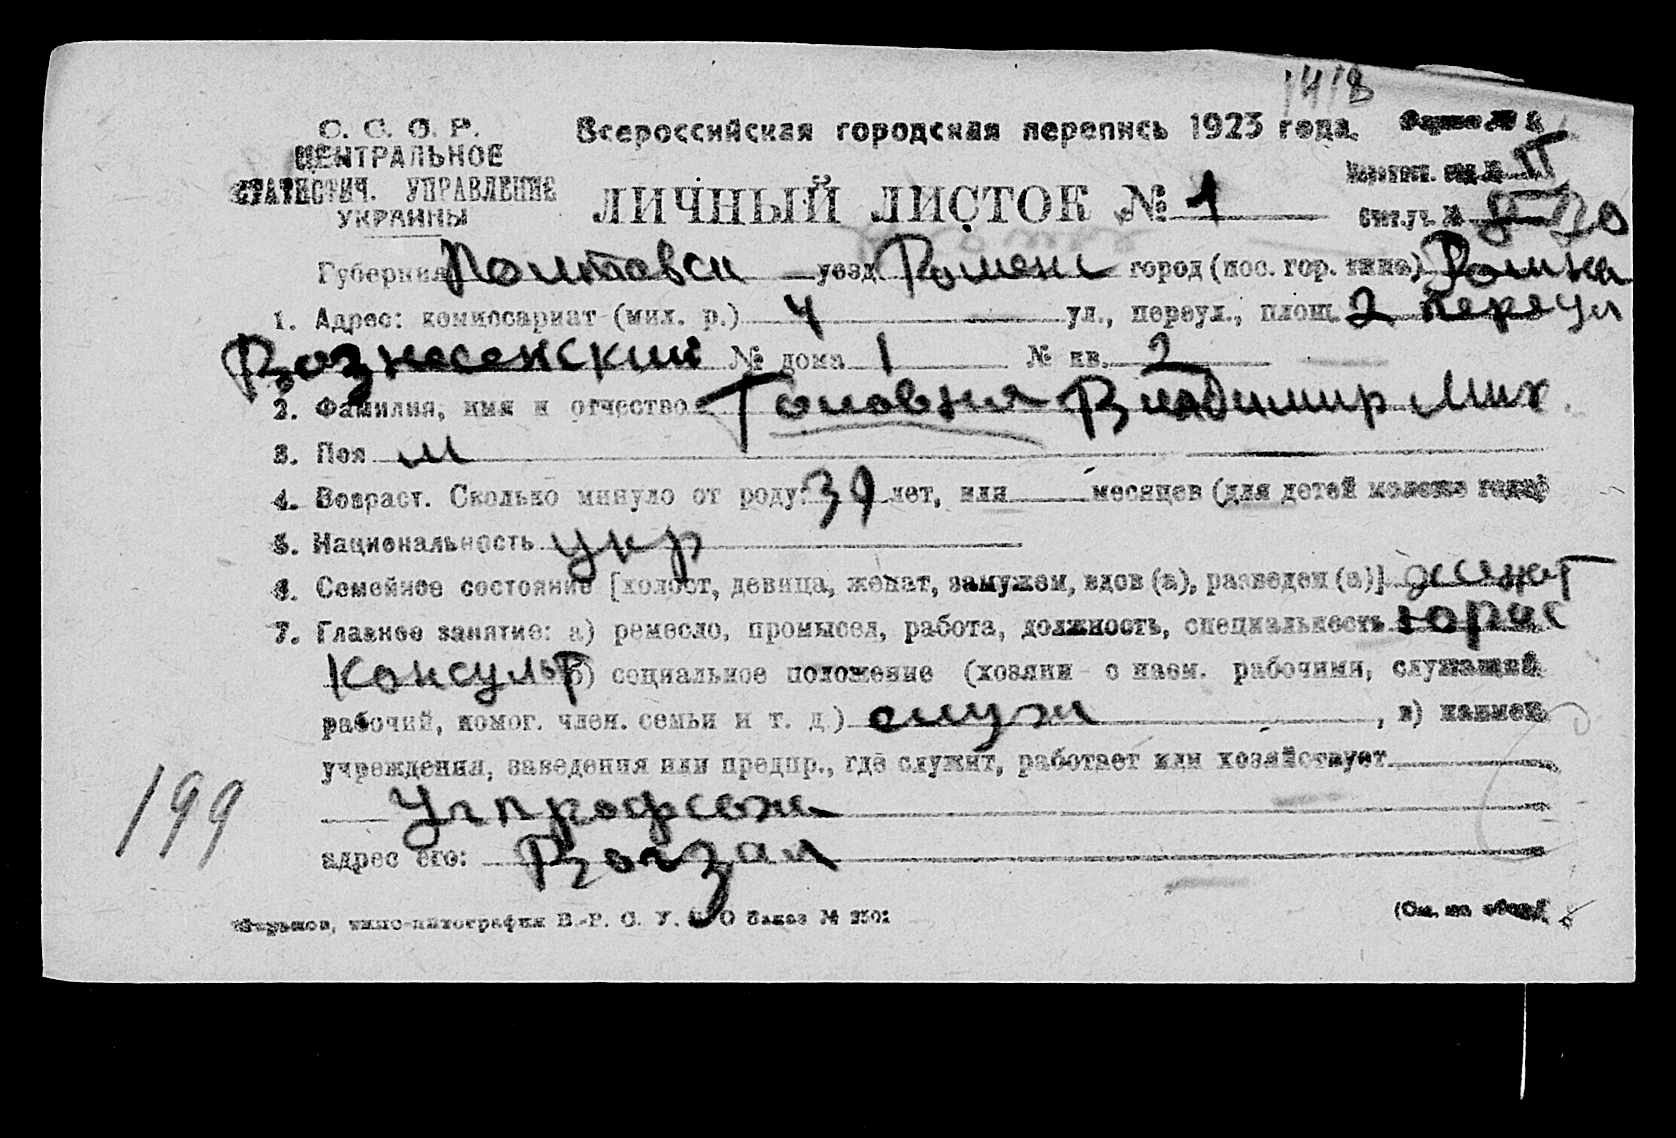 1418
С. С. С. Р.
ЦЕНТРАЛЬНОЕ
СТАТИСТИЧ. УПРАВЛЕНИЕ
УКРАИНЫ
Всероссийская городская перепись 1923 года.
Форма №
ЛИЧНЫЙ ЛИСТОК № 1
Счет. уч. №
Губерния Полтавск уезд Роменс город (пос. гор. типа) Ромны
1. Адрес: комиссариат (мил. р.) 4 ул., переул., площ. 2 переул
Вознесенский № дома 1 № кв. 2
2. Фамилия, имя и отчество Головня Владимир Мих.
3. Пол м
4. Возраст. Сколько минуло от роду: 39 лет, или месяцев (для детей моложе года)
5. Национальность укр
6. Семейное состояние [холост, девица, женат, замужем, вдов (а), разведен (а)] женат
7. Главное занятие: а) ремесло, промысел, работа, должность, специальность юрис
консульт б) социальное положение (хозяин с наем. рабочими, служащий
рабочий, помог. член. семьи и т. д.) служ , в) наимен.
учреждения, заведения или предпр., где служит, работает или хозяйствует
Учпрофсож
адрес его: Вокзал
199
Харьков, типо-литография В.-Р. С. У. Заказ №
(См. на обор.)